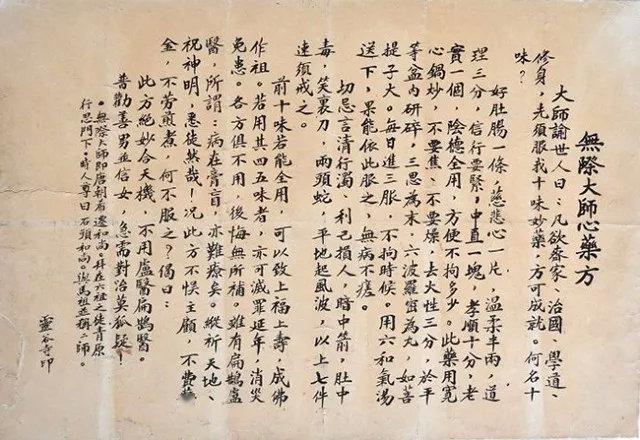 無際大師心藥方
大師諭世人曰:凡欲齋家、治國、學道、
修身,先須服我十味妙藥,方可成就。何名十
味?
好肚腸一條,慈悲心一片,溫柔半兩,道
理三分,信行要緊,中直一塊,孝順十分,老
實一個,陰德全用,方便不拘多少。此藥用寬
心鍋炒,不要焦、不要燥,去火性三分,於平
等盆內研碎,三思為末,六波羅密為丸,如菩
提子大。每日進三服,不拘時候。用六和氣湯
送下,果能依此服之,無病不瘥。
切忌言清行濁、利己損人,暗中箭,肚中
毒,笑裏刀,兩頭蛇,平地起風波,以上七件
速須戒之。
前十味若能全用,可以致上福上壽,成佛
作祖。若用其四五味者,亦可滅罪延年,消災
免患。各方俱不用,後悔無所補。雖有扁鵲盧
醫,所謂:病在膏盲,亦難療矣。縱祈天地、
祝神明,悉徒然哉!况此方不悞主顧,不費藥
金,不勞煎煮,何不服之?偈曰:
此方絕妙合天機,不用盧醫扁鵲醫。
普勸善男並信女,急需對治莫狐疑!
。無際大師即唐朝希遷和尚。拜在六祖之徒青原
行思門下。時人尊曰石頭和尚。與馬祖並稱二師。
靈谷寺印